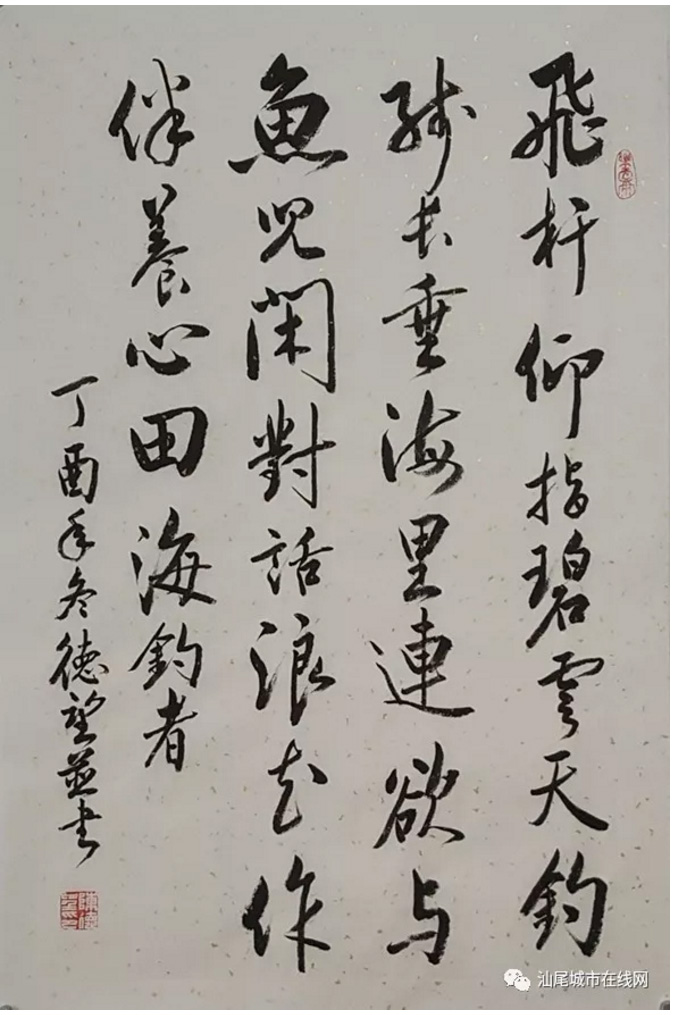 飛杆仰指碧雲天釣
綫長垂海里連欲與
魚兒閑對話浪花作
伴養心田海釣者
丁酉年冬德望並书
汕尾城市在线网